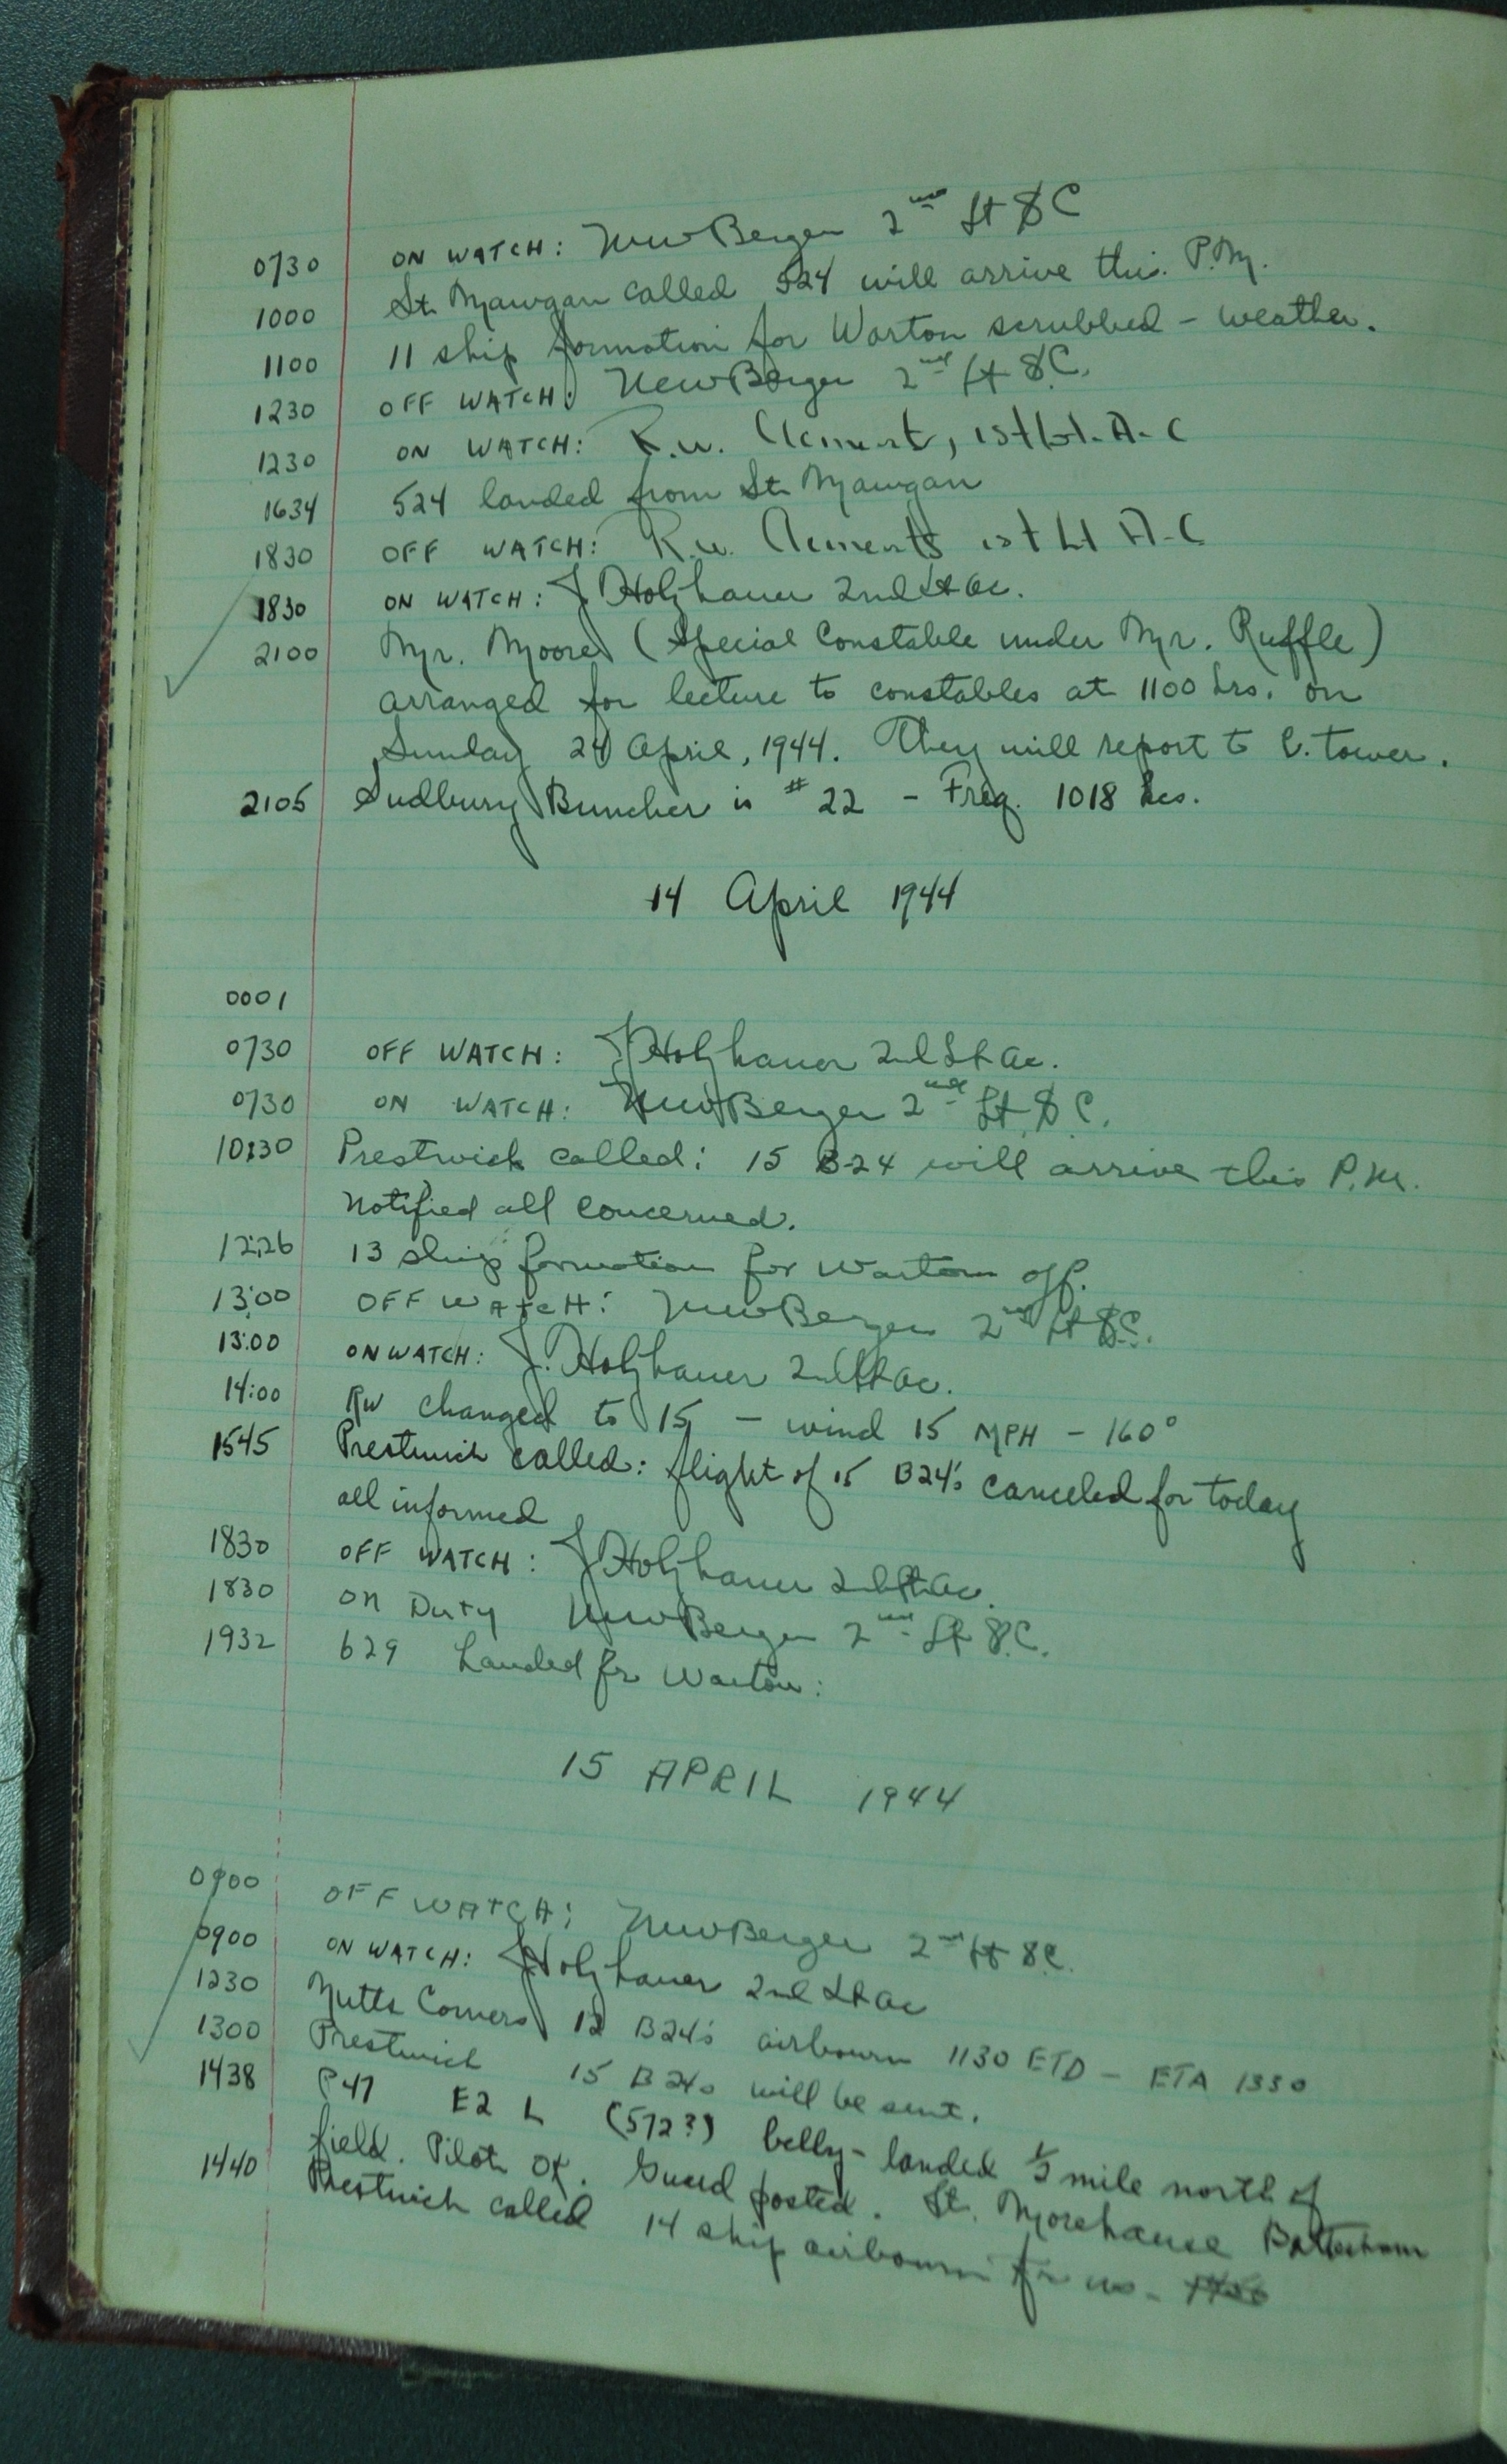 0730 ON WATCH: NewBerger 2nd Lt SC
1000 St. Mawgan called 524 will arrive this P.M.
1100 11 ship formation for Warton scrubbed - weather.
1230 OFF WATCH: NewBerger 2nd Lt SC.
1230 ON WATCH: R.W. Clements, 1st Lt. A-C
1634 524 landed from St. Mawgan
1830 OFF WATCH: R.W. Clements 1st Lt A-C
1830 ON WATCH: J Holzhauer 2nd Lt AC.
2100 Mr. Moore (Special Constable under Mr. Ruffle)
arranged for lecture to constables at 1100 hrs. on
Sunday 24 April, 1944. They will report to C. tower.
2105 Sudbury Buncher is #22 - Freq. 1018 kcs.
14 April 1944
0001
0730 OFF WATCH: J Holzhauer 2nd Lt AC.
0730 ON WATCH: NewBerger 2nd Lt. S.C.
10:30 Prestwick called: 15 B-24 will arrive this P.M.
Notified all concerned.
12:26 13 ship formation for Warton off.
13:00 OFF WATCH: NewBerger 2nd Lt S.C.
13:00 ON WATCH: J. Holzhauer 2nd Lt AC.
14:00 RW changed to 15 - wind 15 MPH - 160°
1545 Prestwick called: flight of 15 B24's canceled for today
all informed
1830 OFF WATCH: J Holzhauer 2nd Lt AC.
1830 ON Duty NewBerger 2nd Lt S.C.
1932 629 Landed fr Warton:
15 APRIL 1944
0900 OFF WATCH: NewBerger 2nd Lt S.C.
0900 ON WATCH: J Holzhauer 2nd Lt AC
1230 Nutts Corners 12 B24's airbourn 1130 ETD - ETA 1330
1300 Prestwick 15 B24s will be sent.
1438 P47 E2 L (572?) belly-landed 1/2 mile north of
field. Pilot OK. Guard posted. Lt. Morehouse Bottesham
1440 Prestwick called 14 ship airbourn for us -